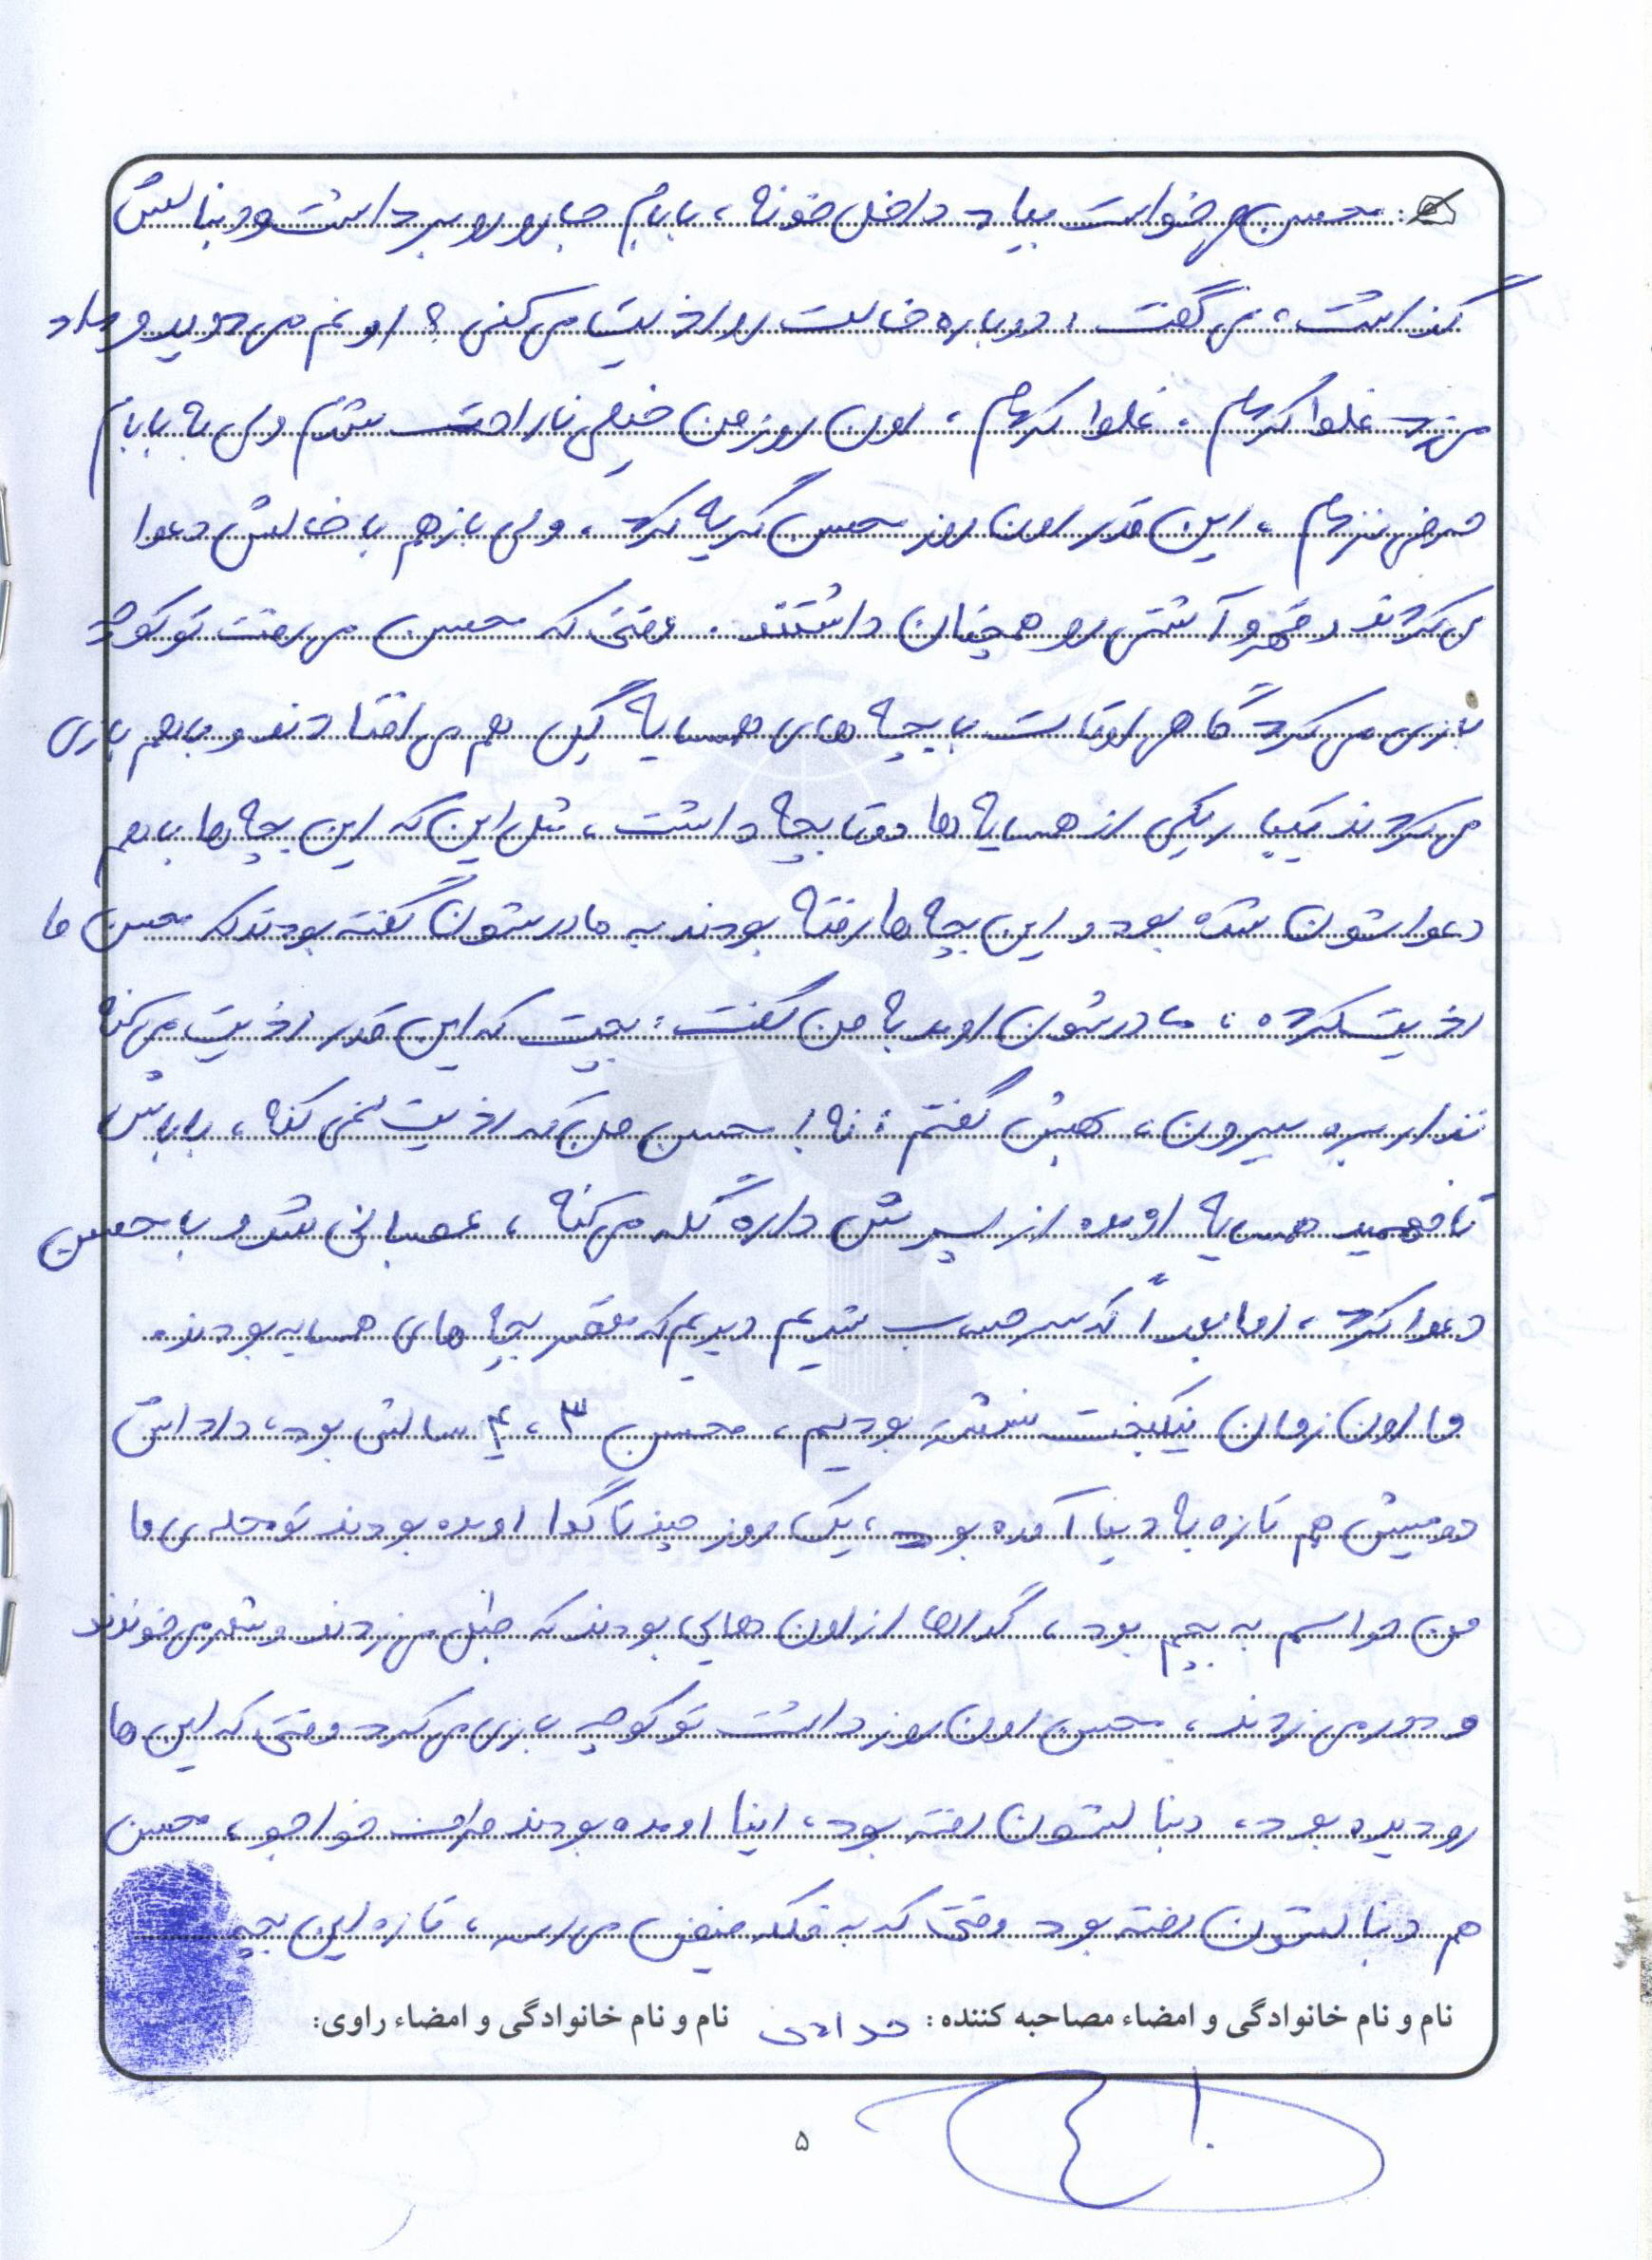 : محسن می خواست بیاد داخل خونه، بابام جارو رو برداشت و دنبالش
گذاشت، می گفت: دوباره خالت رو اذیت می کنی؟ اونم می دوید و داد
می زد غلط کردم، غلط کردم، اون روز من خیلی ناراحت شدم ولی به بابام
حرفی نزدم، این قدر اون روز محسن گریه کرد، ولی باز هم با خالش دعوا
می کردند و قهر و آشتی رو همچنان داشتند. وقتی که محسن می رفت تو کوچه
بازی می کرد گاهی اوقات با بچه های همسایه گِل هم می افتادند و با هم بازی
می کردند یکبار یکی از همسایه ها دو تا بچه داشت، مثل این که این بچه ها با هم
دعواشون شده بود و این بچه ها رفته بودند به مادرشون گفته بودند که محسن ما
اذیت کرده، مادرشون اومد به من گفت: بچت که این قدر اذیت می کنه
نذار بره بیرون، بهش گفتم: نه! محسن من که اذیت نمی کنه، باباش
تا فهمید همسایه اومده از پسرش داره گله می کنه، عصبانی شد و با محسن
دعوا کرد، اما بعداً که سر حساب شدیم دیدیم که مقصر بچه های همسایه بودند.
ما اون زمان نیکبخت نشسته بودیم، محسن ۳، ۴ سالش بود، داداش
دومیش هم تازه به دنیا آمده بود، یک روز چند تا گدا اومده بودند تو محله ی ما
من حواسم به بچم بود، گداها از اون هایی بودند که طبل می زدند و شعر می خوندند
و دور می زدند، محسن اون روز داشت تو کوچه بازی می کرد وقتی که این ها
رو دیده بود، دنبالشون رفته بود، اینا اومده بودند طرف خواجو، محسن
هم دنبالشون رفته بود وقتی که به فلکه فیض می رسه، تازه این بچه
نام و نام خانوادگی و امضاء مصاحبه کننده: نام و نام خانوادگی و امضاء راوی:
۵